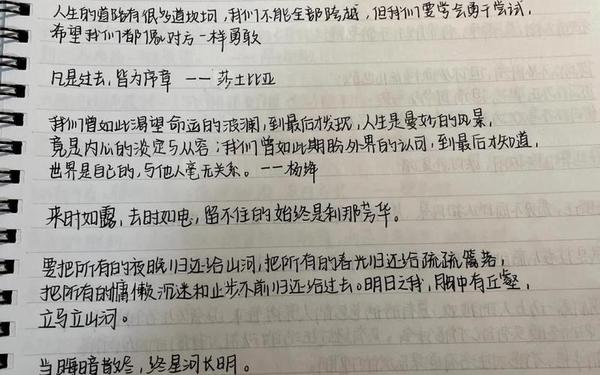 人生的道路有很多道坎坷，我们不能全部跨越，但我们要学会勇于尝试，
希望我们都像对方一样勇敢
凡是过去，皆为序章 ——莎士比亚
我们曾如此渴望命运的波澜，到最后才发现，人生是曼妙的风景，
竟是内心的淡定与从容；我们曾如此期盼外界的认可，到最后才知道，
世界是自己的，与他人毫无关系。——杨绛
来时如露，去时如电，留不住的始终是刹那芳华。
要把所有的夜晚归还给山河，把所有的春光归还给疏疏篱落，
把所有的慵懒沉迷和止步不前归还给过去。明日之我，胸中有丘壑，
立马立山河。
当晦暗散尽，终星河长明。